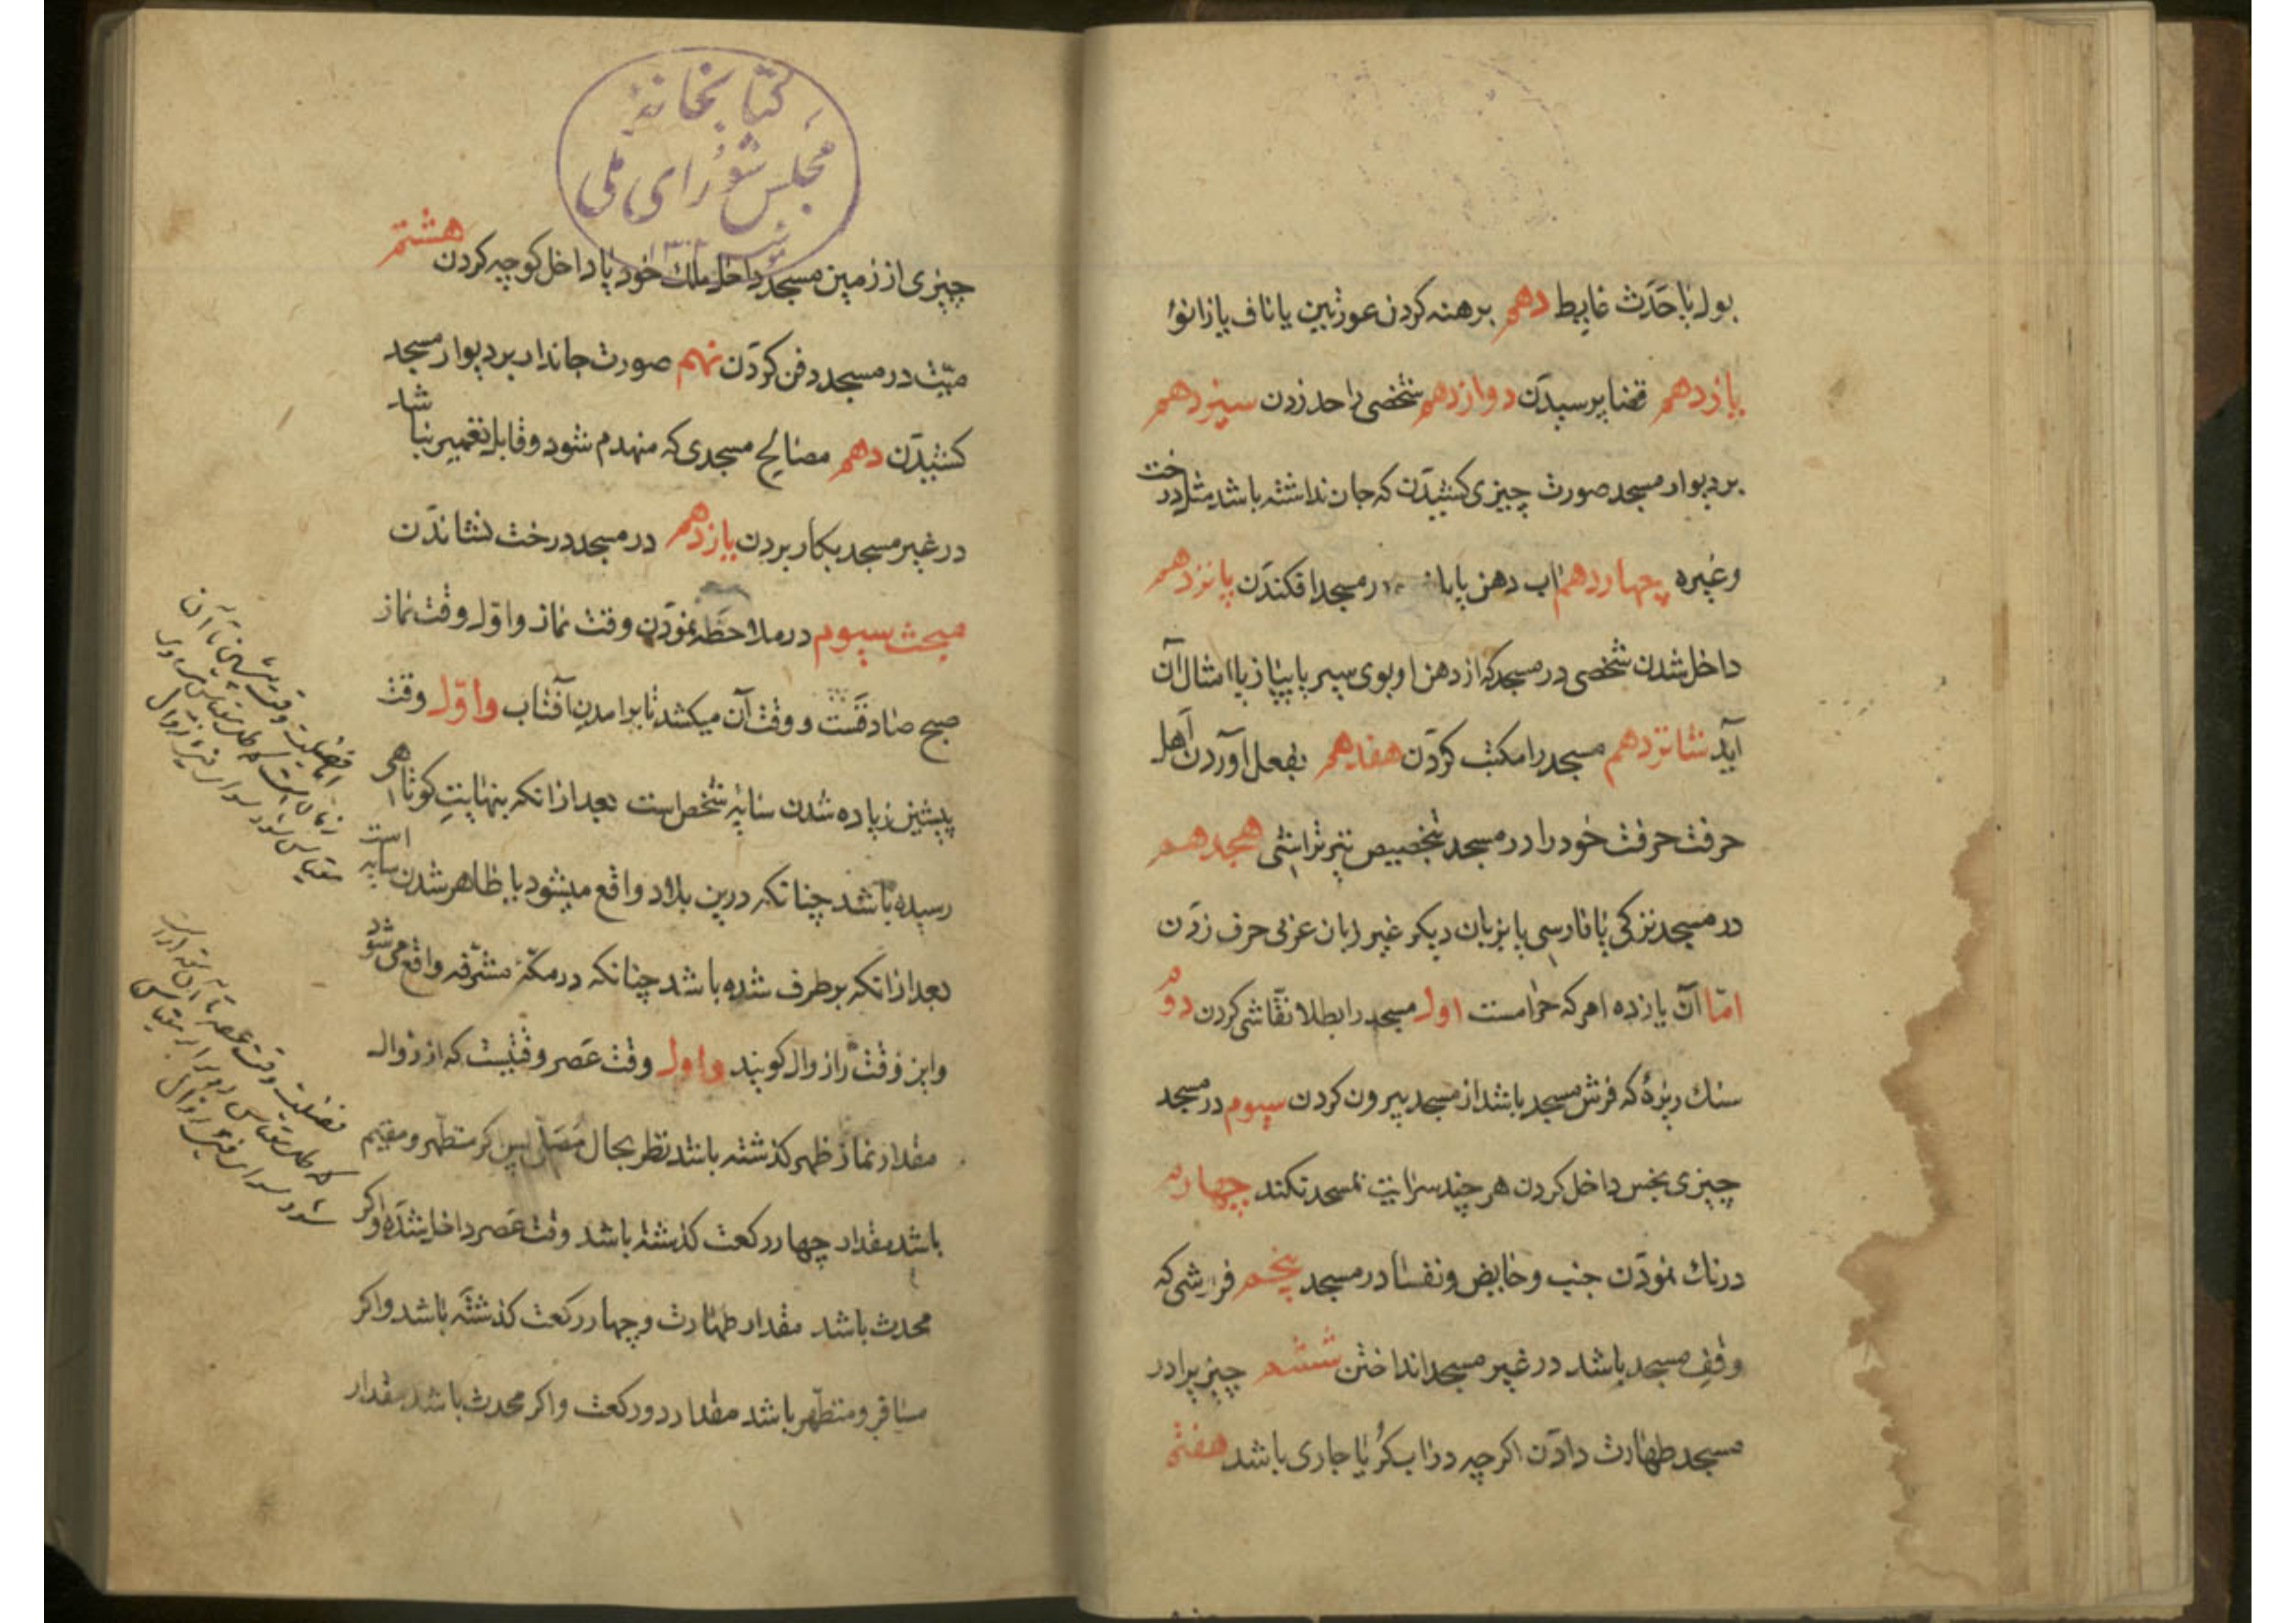 بول یا حَدَث غایط دهم برهنه کردن عورتین یا ناف یا زانؤ
یازدهم قضا پرسیدَن دوازدهم شخصی را حد زدن سیزدهم
بر دیوار مسجد صورت چیزی کشیدَن که جان نداشته باشد مثل درخت
وغیره چهاردهم اب دهن یا در مسجد افکندَن پانزدهم
داخل شدن شخصی در مسجد که از دهن او بوی سیر یا پیاز یا امثال آن
آید شانزدهم مسجد را مکتب کردَن هفدهم بفعل آوردن اَهل
حرفت حرفت خود را در مسجد بتخصیص تیر تراشی هجدهم
در مسجد بترکی یا فارسی یا بزبان دیکر غیر زبان عربی حرف زدَن
امّا آن یازده امر که حرامست اول مسجد را بطلا نقّاشی کردن دوم
سنك ریزهٔ که فرش مسجد باشد از مسجد بیرون کردن سیوم در مسجد
چیزی نجس داخل کردن هر چند سرایت بمسجد نکند چهارم
درنك نمودَن جنب و حایض و نفسا در مسجد پنجم فراشی که
وقف مسجد باشد در غیر مسجد انداختن ششم چیزیرا در
مسجد طهارت دادَن اکرچه در اب کُر یا جاری باشد هفتم
کتابخانهٔ
مجلس شورای ملی
چیزی از زمین مسجد داخل ملك خود یا داخل کوچه کردن هشتم
میّت در مسجد دفن کردَن نهم صورت جاندار بر دیوار مسجد
کشیدَن دهم مصالح مسجدی که منهدم شود و قابل تعمیر نباشد
در غیر مسجد بکار بردن یازدهم در مسجد درخت نشاندَن
مبحث سیوم در ملاحظه نمودَن وقت نماز و اوّل وقت نماز
صبح صادقَست و وقت آن میکشد تا برامدن آفتاب و اوّل وقت
پیشین زیاده شدن سایهٔ شخص است بعد ازانکه بنهایت کوتاهی
رسیده باشد چنانکه درین بلاد واقع میشود یا ظاهر شدن سایه است
بعد ازانکه برطرف شده باشد چنانکه در مکّهٔ مشرّفه واقع می شود
و این وقت را زوال کویند و اول وقت عَصر وقتیست که از زوال
مقدار نماز ظهر کذشته باشد نظر بحال مُصَلّی پس کر متطهر و مقیم
باشد مقدار چهار رکعت کذشته باشد وقت عَصر داخل شدَه و اکر
محدث باشد مقدار طهارت و چهار رکعت کذشتَه باشد و اکر
مسافر و متطهّر باشد مقدار دو رکعت و اکر محدث باشد مقدار